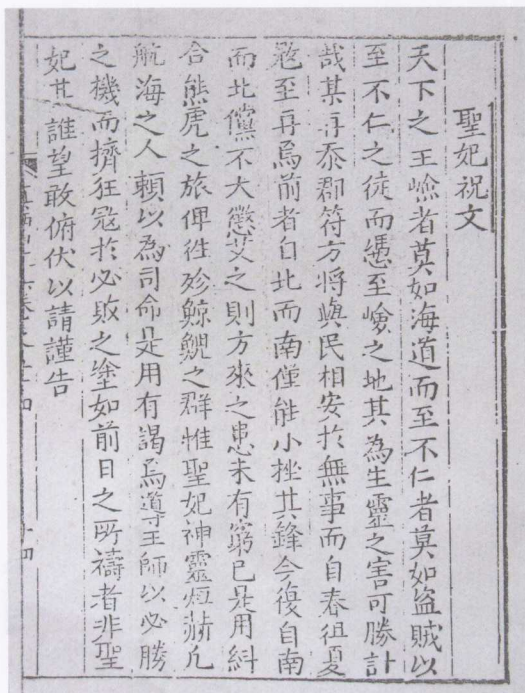 聖妃祝文
天下之王嶮者莫如海道而至不仁者莫如盗賊以
至不仁之徒而憑至嶮之地其為生靈之害可勝計
哉某再忝郡符方將與民相安於無事而自春徂夏
寇至再焉前者自北而南僅能小挫其鋒今復自南
而北儻不大懲艾之則方來之患未有窮已是用糾
合熊虎之旅俾往殄鯨鯢之群惟聖妃神靈烜赫凢
航海之人賴以為司命是用有謁焉導王師以必勝
之機而擠狂冦於必敗之塗如前日之所禱者非聖
妃其誰望敢俯伏以請謹告